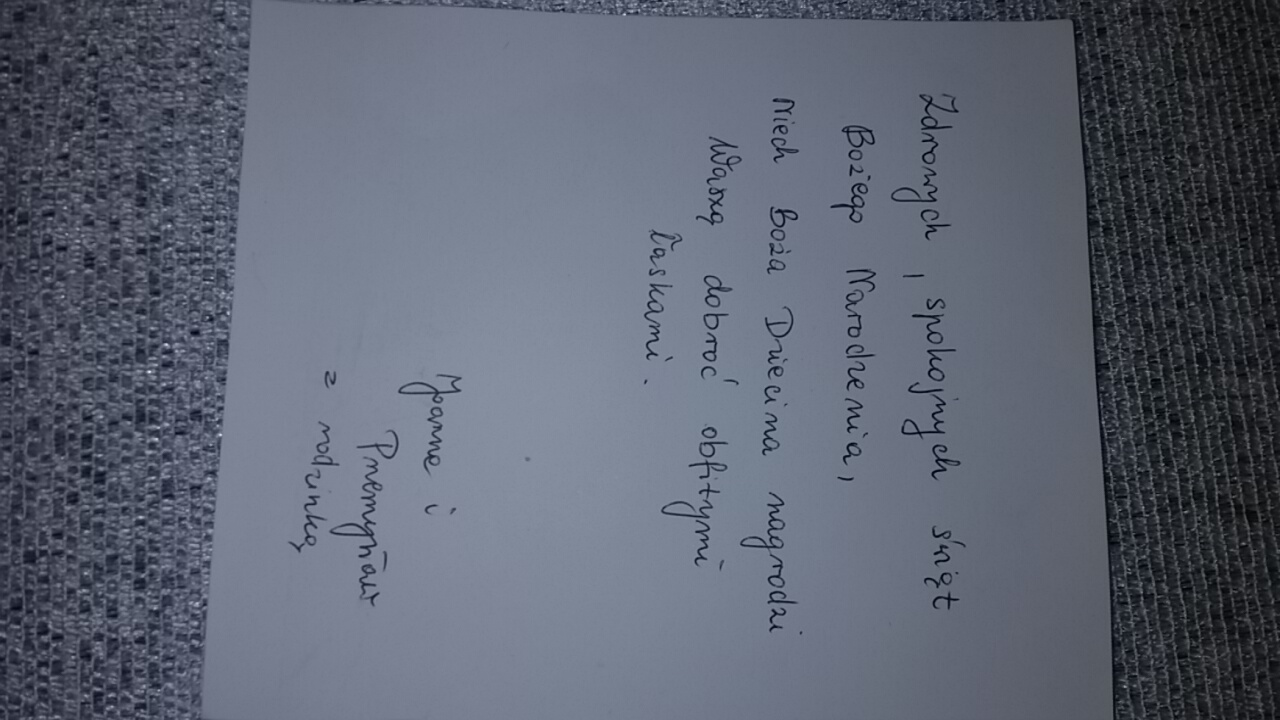 Zdrowych i spokojnych świąt
Bożego Narodzenia,
Niech Boża Dziecina nagrodzi
Waszą dobroć obfitymi
łaskami.
i
Przemysław
z rodzinką